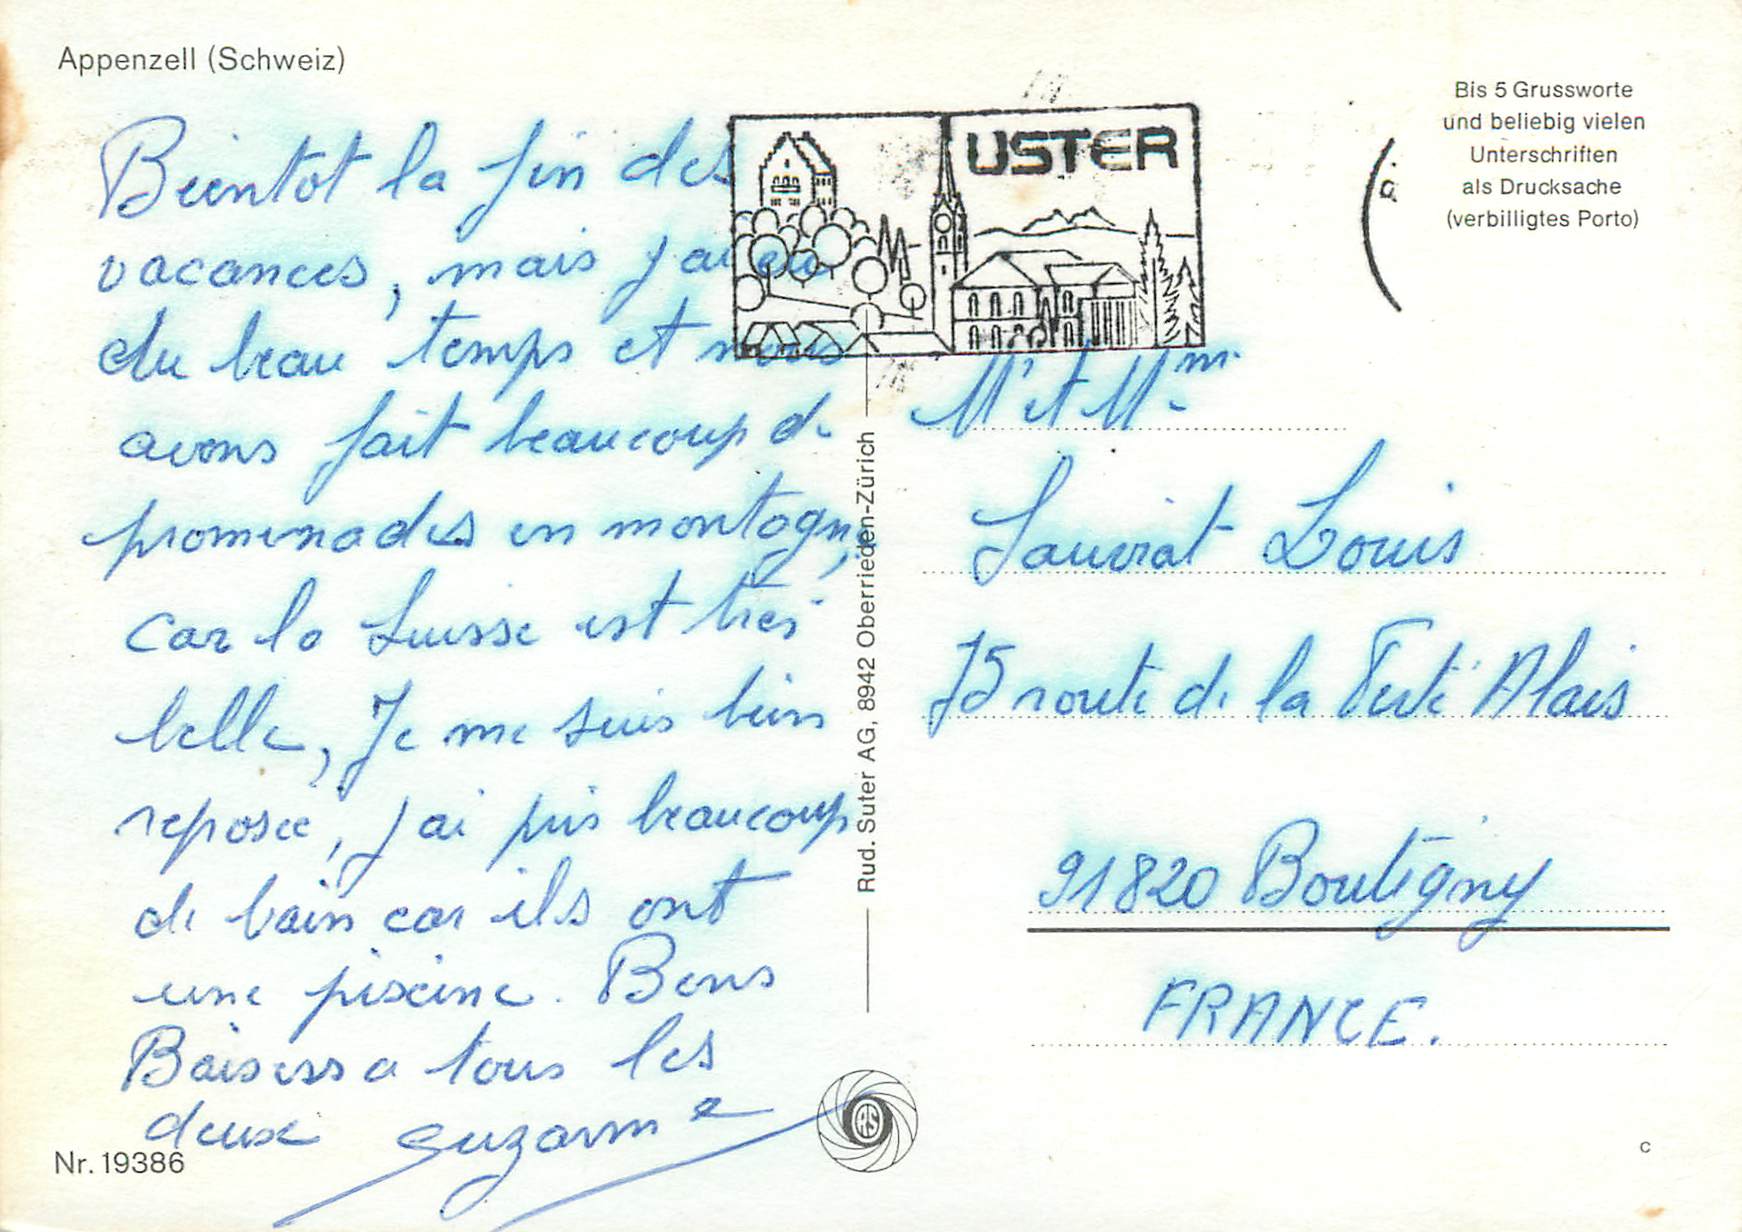 Appenzell (Schweiz)
Bientot la fin des
vacances, mais j'ai eu
du beau temps et nous
avons fait beaucoup de
promenades en montagne,
car la Suisse est très
belle, Je me suis bien
reposée, j'ai pris beaucoup
de bain car ils ont
une piscine. Bons
Baisers a tous les
deux Suzanne
Nr. 19386
Rud. Suter AG, 8942 Oberrieden-Zürich
USTER
Bis 5 Grussworte
und beliebig vielen
Unterschriften
als Drucksache
(verbilligtes Porto)
Mr et Mme
Sauviat Louis
75 route de la Ferté Alais
91820 Boutigny
FRANCE.
RS
c